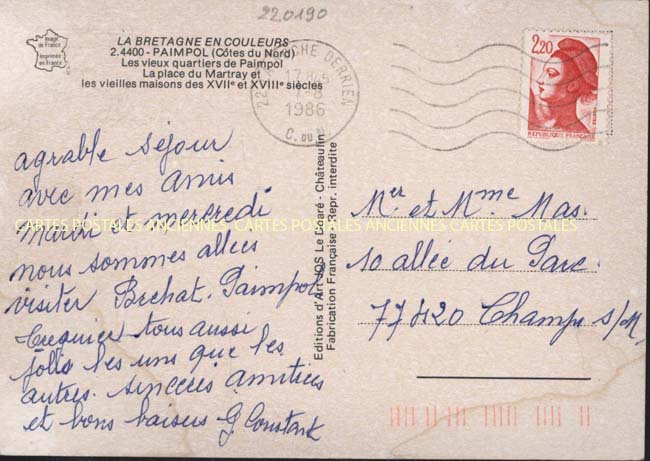 220190
Image de France
Imprimée en France
LA BRETAGNE EN COULEURS
2.4400 - PAIMPOL (Côtes du Nord)
Les vieux quartiers de Paimpol
La place du Martray et
les vieilles maisons des XVIIe et XVIIIe siècles
22 ROCHE DERRIEN
17 H 45
7-8
1986
C. DU N.
2,20
POSTES
REPUBLIQUE FRANÇAISE
agrable séjour
avec mes amis
mardi et mercredi
nous sommes allées
visiter Brehat. Paimpol
Treguier tous aussi
jolis les uns que les
autres. sinceres amitiées
et bons baisers G Constant
Editions d'Art JOS Le Doaré - Châteaulin
Fabrication Française - Repr. interdite
Mer et Mme Mas.
10 allée du Parc
77420 Champs s/M
CARTES POSTALES ANCIENNES CARTES POSTALES ANCIENNES CARTES POSTALES